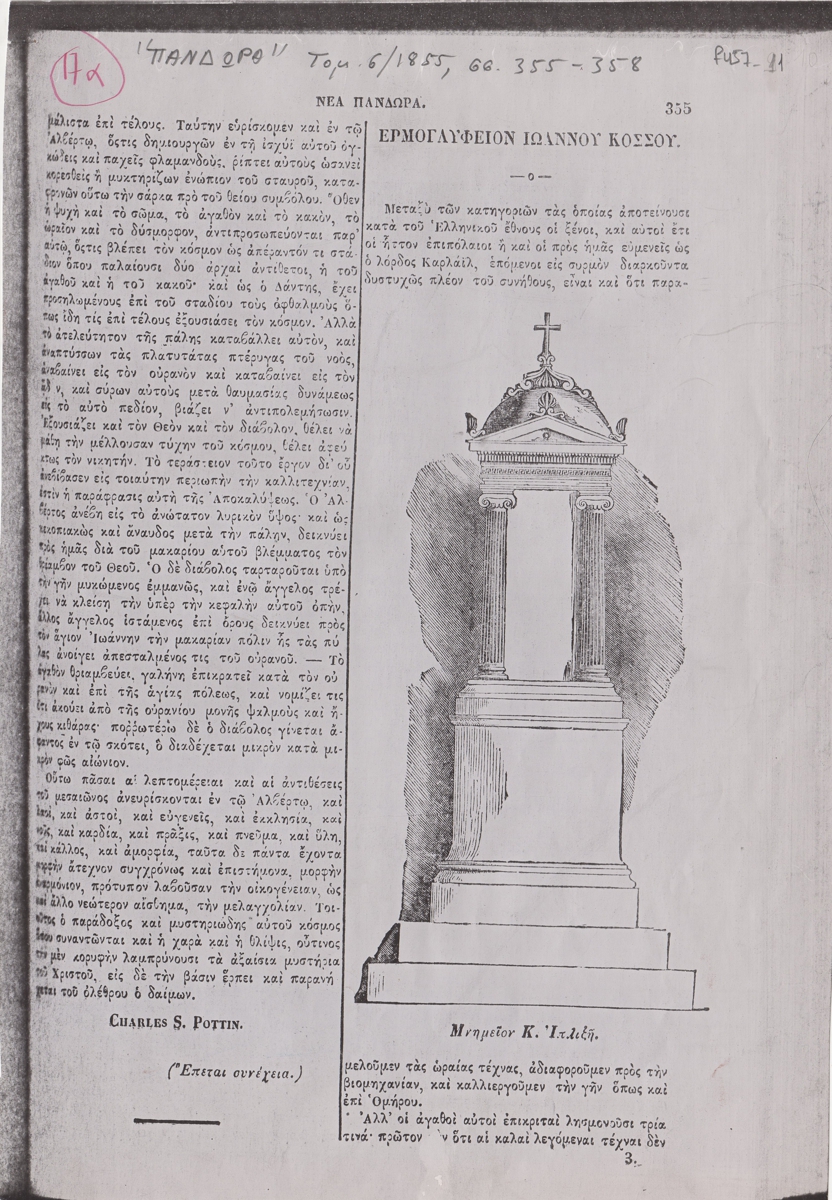 17α
"ΠΑΝΔΩΡΑ" Τομ. 6/1855, σσ. 355-358
ΝΕΑ ΠΑΝΔΩΡΑ.
355
μάλιστα ἐπὶ τέλους. Ταύτην εὑρίσκομεν καὶ ἐν τῷ
Ἀλβέρτῳ, ὅςτις δημιουργῶν ἐν τῇ ἰσχύϊ αὐτοῦ ὀγ-
κώδεις καὶ παχεῖς φλαμανδοὺς, ῥίπτει αὐτοὺς ὡσανεὶ
κορεσθεὶς ἢ μυκτηρίζων ἐνώπιον τοῦ σταυροῦ, κατα-
φρονῶν οὕτω τὴν σάρκα πρὸ τοῦ θείου συμβόλου. Ὅθεν
ἡ ψυχὴ καὶ τὸ σῶμα, τὸ ἀγαθὸν καὶ τὸ κακὸν, τὸ
ὡραῖον καὶ τὸ δύσμορφον, ἀντιπροσωπεύονται παρ'
αὐτῷ, ὅςτις βλέπει τὸν κόσμον ὡς ἀπέραντόν τι στά-
διον ὅπου παλαίουσι δύο ἀρχαὶ ἀντίθετοι, ἡ τοῦ
ἀγαθοῦ καὶ ἡ τοῦ κακοῦ· καὶ ὡς ὁ Δάντης, ἔχει
προσηλωμένους ἐπὶ τοῦ σταδίου τοὺς ὀφθαλμοὺς ὅ-
πως ἴδῃ τίς ἐπὶ τέλους ἐξουσιάσει τὸν κόσμον. Ἀλλὰ
τὸ ἀτελεύτητον τῆς πάλης καταβάλλει αὐτὸν, καὶ
ἀναπτύσσων τὰς πλατυτάτας πτέρυγας τοῦ νοὸς,
ἀναβαίνει εἰς τὸν οὐρανὸν καὶ καταβαίνει εἰς τὸν
ᾅδην, καὶ σύρων αὐτοὺς μετὰ θαυμασίας δυνάμεως
εἰς τὸ αὐτὸ πεδίον, βιάζει ν' ἀντιπολεμήσωσιν.
Ἐξουσιάζει καὶ τὸν Θεὸν καὶ τὸν διάβολον, θέλει νὰ
μάθῃ τὴν μέλλουσαν τύχην τοῦ κόσμου, θέλει ἀφεύ
κτως τὸν νικητήν. Τὸ τεράστειον τοῦτο ἔργον δι' οὗ
ἀνεβίβασεν εἰς τοιαύτην περιωπὴν τὴν καλλιτεχνίαν,
ἐστὶν ἡ παράφρασις αὐτὴ τῆς Ἀποκαλύψεως. Ὁ Ἀλ-
βέρτος ἀνέβη εἰς τὸ ἀνώτατον λυρικὸν ὕψος· καὶ ὡς
κεκοπιακὼς καὶ ἄναυδος μετὰ τὴν πάλην, δεικνύει
πρὸς ἡμᾶς διὰ τοῦ μακαρίου αὐτοῦ βλέμματος τὸν
θρίαμβον τοῦ Θεοῦ. Ὁ δὲ διάβολος ταρταροῦται ὑπὸ
τὴν γῆν μυκώμενος ἐμμανῶς, καὶ ἐνῷ ἄγγελος τρέ-
χει νὰ κλείσῃ τὴν ὑπὲρ τὴν κεφαλὴν αὐτοῦ ὀπὴν,
ἄλλος ἄγγελος ἱστάμενος ἐπὶ ὄρους δεικνύει πρὸς
τὸν ἅγιον Ἰωάννην τὴν μακαρίαν πόλιν ἧς τὰς πύ
λας ἀνοίγει ἀπεσταλμένος τις τοῦ οὐρανοῦ. — Τὸ
ἀγαθὸν θριαμβεύει, γαλήνη ἐπικρατεῖ κατὰ τὸν οὐ
ρανὸν καὶ ἐπὶ τῆς ἁγίας πόλεως, καὶ νομίζει τις
ὅτι ἀκούει ἀπὸ τῆς οὐρανίου μονῆς ψαλμοὺς καὶ ἤ-
χους κιθάρας· ποῤῥωτέρω δὲ ὁ διάβολος γίνεται ἄ-
φαντος ἐν τῷ σκότει, ὃ διαδέχεται μικρὸν κατὰ μι-
κρὸν φῶς αἰώνιον.
Οὕτω πᾶσαι αἱ λεπτομέρειαι καὶ αἱ ἀντιθέσεις
τοῦ μεσαιῶνος ἀνευρίσκονται ἐν τῷ Ἀλβέρτῳ, καὶ
λαοὶ, καὶ ἀστοὶ, καὶ εὐγενεῖς, καὶ ἐκκλησία, καὶ
νοῦς, καὶ καρδία, καὶ πρᾶξις, καὶ πνεῦμα, καὶ ὕλη,
καὶ κάλλος, καὶ ἀμορφία, ταῦτα δὲ πάντα ἔχοντα
μορφὴν ἄτεχνον συγχρόνως καὶ ἐπιστήμονα, μορφὴν
ἁρμόνιον, πρότυπον λαβοῦσαν τὴν οἰκογένειαν, ὡς
καὶ ἄλλο νεώτερον αἴσθημα, τὴν μελαγχολίαν. Τοι-
οῦτος ὁ παράδοξος καὶ μυστηριώδης αὐτοῦ κόσμος
ὅπου συναντῶνται καὶ ἡ χαρὰ καὶ ἡ θλίψις, οὗτινος
τὴν μὲν κορυφὴν λαμπρύνουσι τὰ ἀξαίσια μυστήρια
τοῦ Χριστοῦ, εἰς δὲ τὴν βάσιν ἕρπει καὶ παραμο
νεύει τοῦ ὀλέθρου ὁ δαίμων.
CHARLES S. POTTIN.
(Ἕπεται συνέχεια.)
ΕΡΜΟΓΛΥΦΕΙΟΝ ΙΩΑΝΝΟΥ ΚΟΣΣΟΥ.
—ο—
Μεταξὺ τῶν κατηγοριῶν τὰς ὁποίας ἀποτείνουσι
κατὰ τοῦ Ἑλληνικοῦ ἔθνους οἱ ξένοι, καὶ αὐτοὶ ἔτι
οἱ ἧττον ἐπιπόλαιοι ἢ καὶ οἱ πρὸς ἡμᾶς εὐμενεῖς ὡς
ὁ λόρδος Καρλάϊλ, ἑπόμενοι εἰς συρμὸν διαρκοῦντα
δυστυχῶς πλέον τοῦ συνήθους, εἶναι καὶ ὅτι παρα-
Μνημεῖον Κ. Ἰπλιξῆ.
μελοῦμεν τὰς ὡραίας τέχνας, ἀδιαφοροῦμεν πρὸς τὴν
βιομηχανίαν, καὶ καλλιεργοῦμεν τὴν γῆν ὅπως καὶ
ἐπὶ Ὁμήρου.
Ἀλλ' οἱ ἀγαθοὶ αὐτοὶ ἐπικριταὶ λησμονοῦσι τρία
τινά· πρῶτον ὅτι αἱ καλαὶ λεγόμεναι τέχναι δὲν
3.